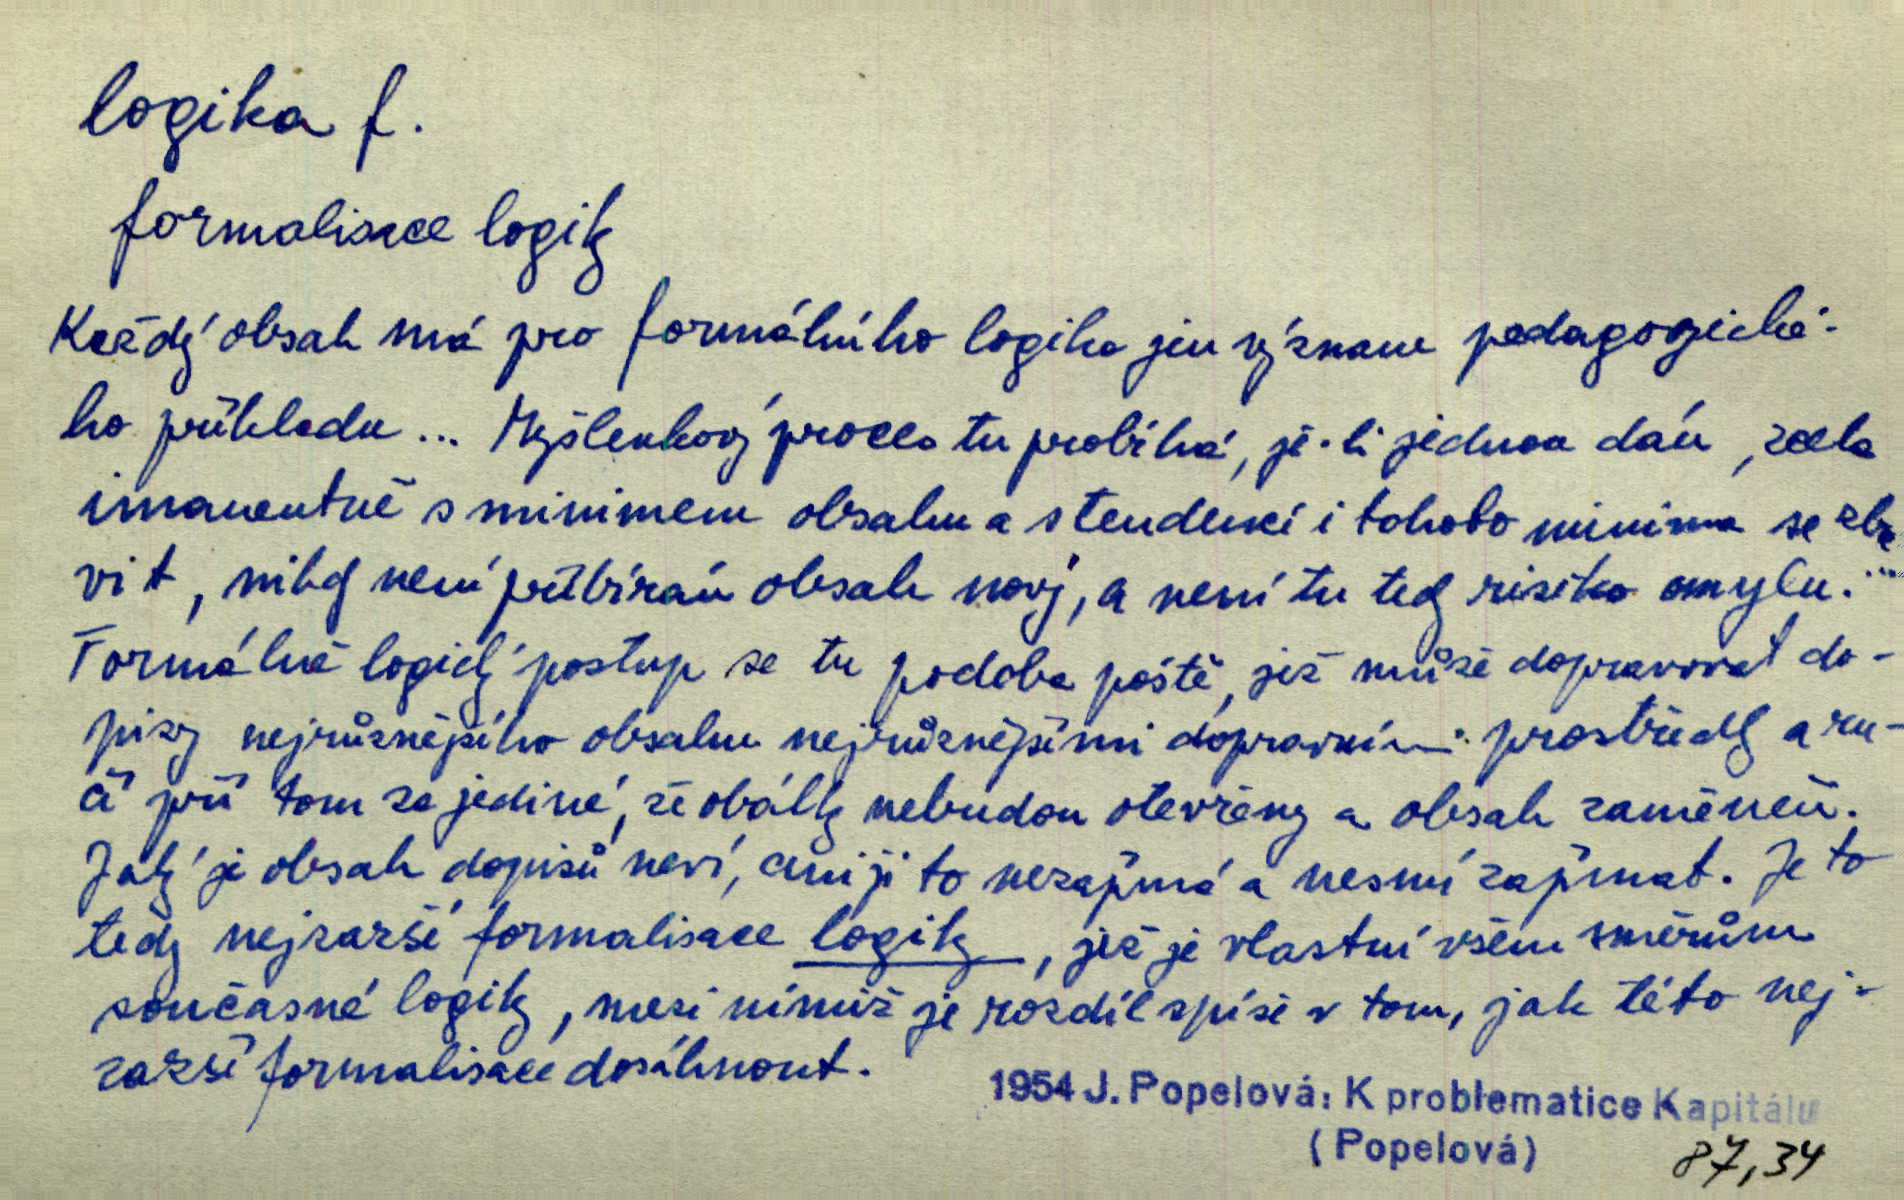 logika f.
formalisace logiky
Každý obsah má pro formálního logika jen význam pedagogické-
ho příkladu ... Myšlenkový proces tu probíhá, je-li jednou dán, zcela
imanentně s minimem obsahu a s tendencí i tohoto minima se zba
vit, nikdy není přibírán obsah nový, a není tu tedy risiko omylu. ...
Formálně logický postup se tu podobá poště, jež může dopravovat do-
pisy nejrůznějšího obsahu nejrůznějšími dopravními prostředky a ru-
čí při tom za jediné, že obálky nebudou otevřeny a obsah zaměněn.
Jaký je obsah dopisů neví, ani ji to nezajímá a nesmí zajímat. Je to
tedy nejzazší formalisace logiky, jež je vlastní všem směrům
současné logiky, mezi nimiž je rozdíl spíše v tom, jak této nej-
zazší formalisace dosáhnout.
1954 J. Popelová: K problematice Kapitálu
(Popelová)
87,34